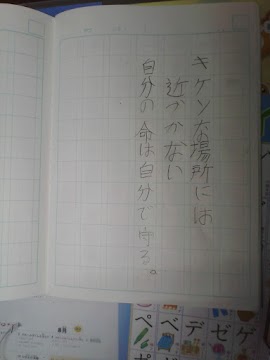 キケンな場所には
近づかない
自分の命は自分で守る。
ゲ
ゼ
デ
ベ
ペ